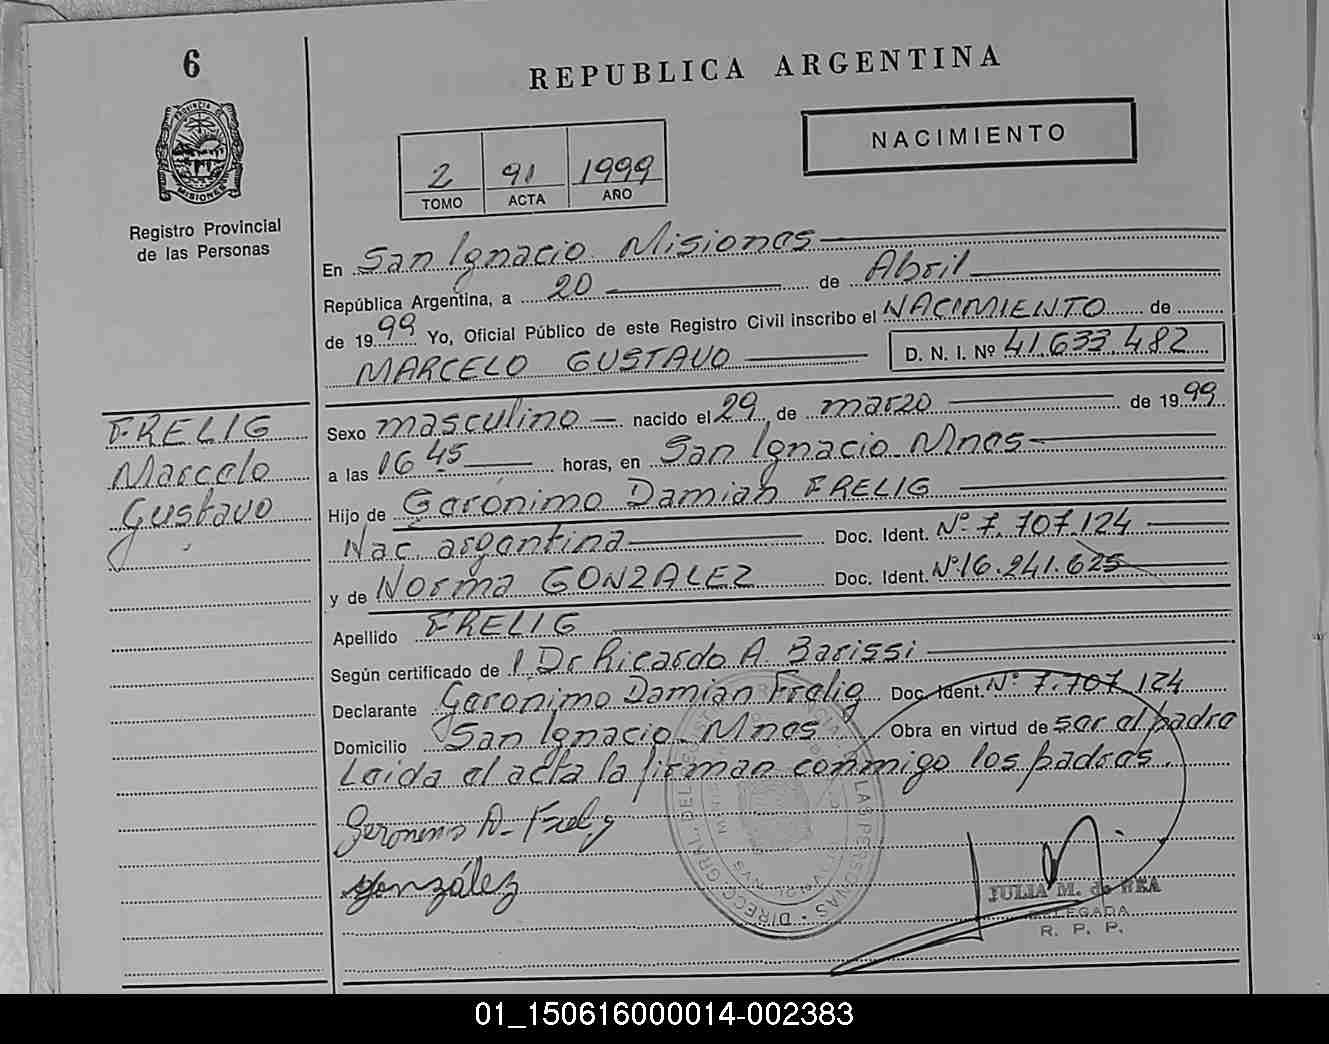 6
REPUBLICA ARGENTINA
PROVINCIA DE
MISIONES
Registro Provincial
de las Personas
NACIMIENTO
2 91 1999
TOMO ACTA AÑO
En San Ignacio Misiones
República Argentina, a 20 de Abril
de 1999 Yo, Oficial Público de este Registro Civil inscribo el NACIMIENTO de
MARCELO GUSTAVO D. N. I. Nº 41.633.482
FRELIG
Marcelo
Gustavo
Sexo masculino nacido el 29 de marzo de 1999
a las 16 45 horas, en San Ignacio Mnes
Hijo de Gerónimo Damian FRELIG
Nac. argentina Doc. Ident. Nº 7.707.124
y de Norma GONZALEZ Doc. Ident. Nº 16.241.625
Apellido FRELIG
Según certificado de l Dr Ricardo A. Barissi
Declarante Geronimo Damian Frelig Doc. Ident. Nº 7.707.124
Domicilio San Ignacio Mnes Obra en virtud de ser el padre
Leida el acta la firman conmigo los padres.
Geronimo D. Frelig
González
JULIA M. de REA
DELEGADA
R. P. P.
01_150616000014-002383